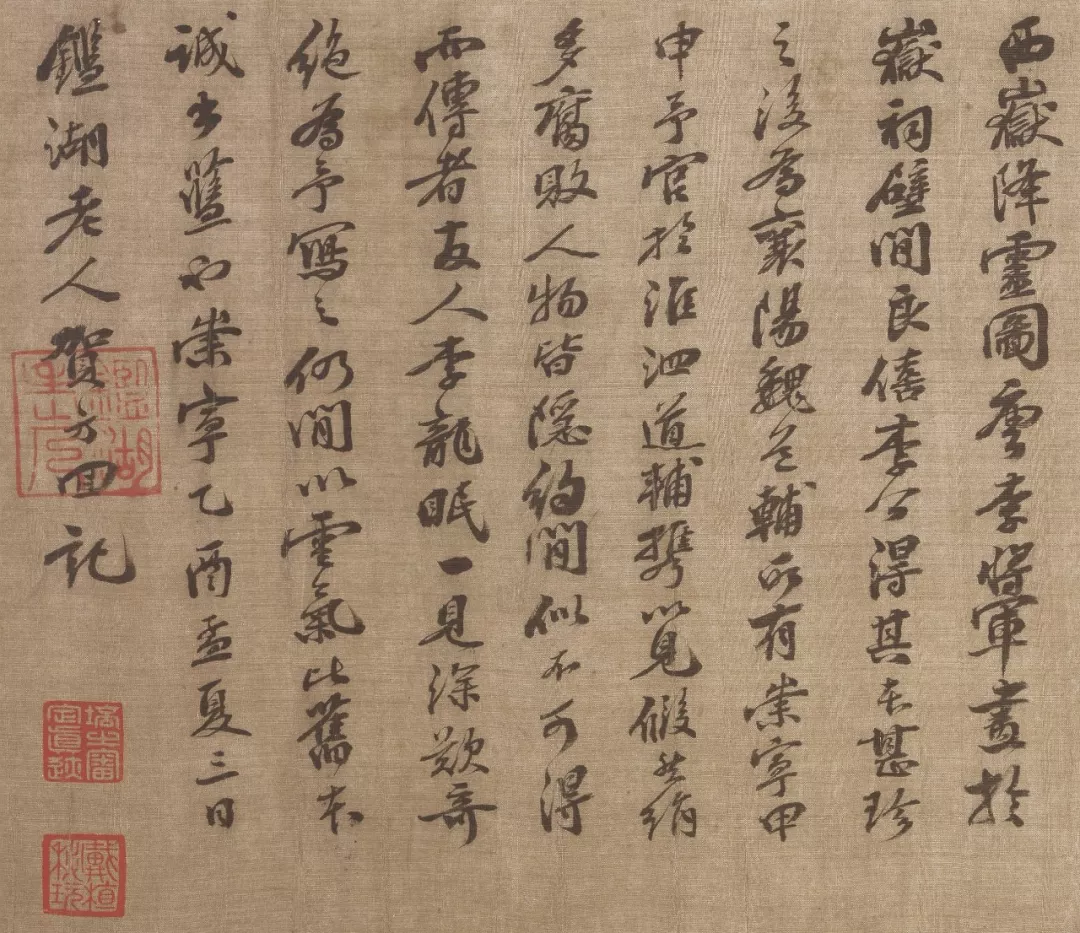 西嶽降靈圖唐李將軍畫於
嶽祠壁間良僖李公得其本甚珍
之後為襄陽魏道輔所有崇寧甲
申予官於淮泗道輔攜以見假然絹
多腐敗人物皆隱約間似不可得
而傳者友人李龍眠一見深歎奇
絕為予寫之仍間以雲氣比舊本
誠出藍也崇寧乙酉孟夏三日
鑑湖老人賀方回記
培之審定真迹
戴植秘玩